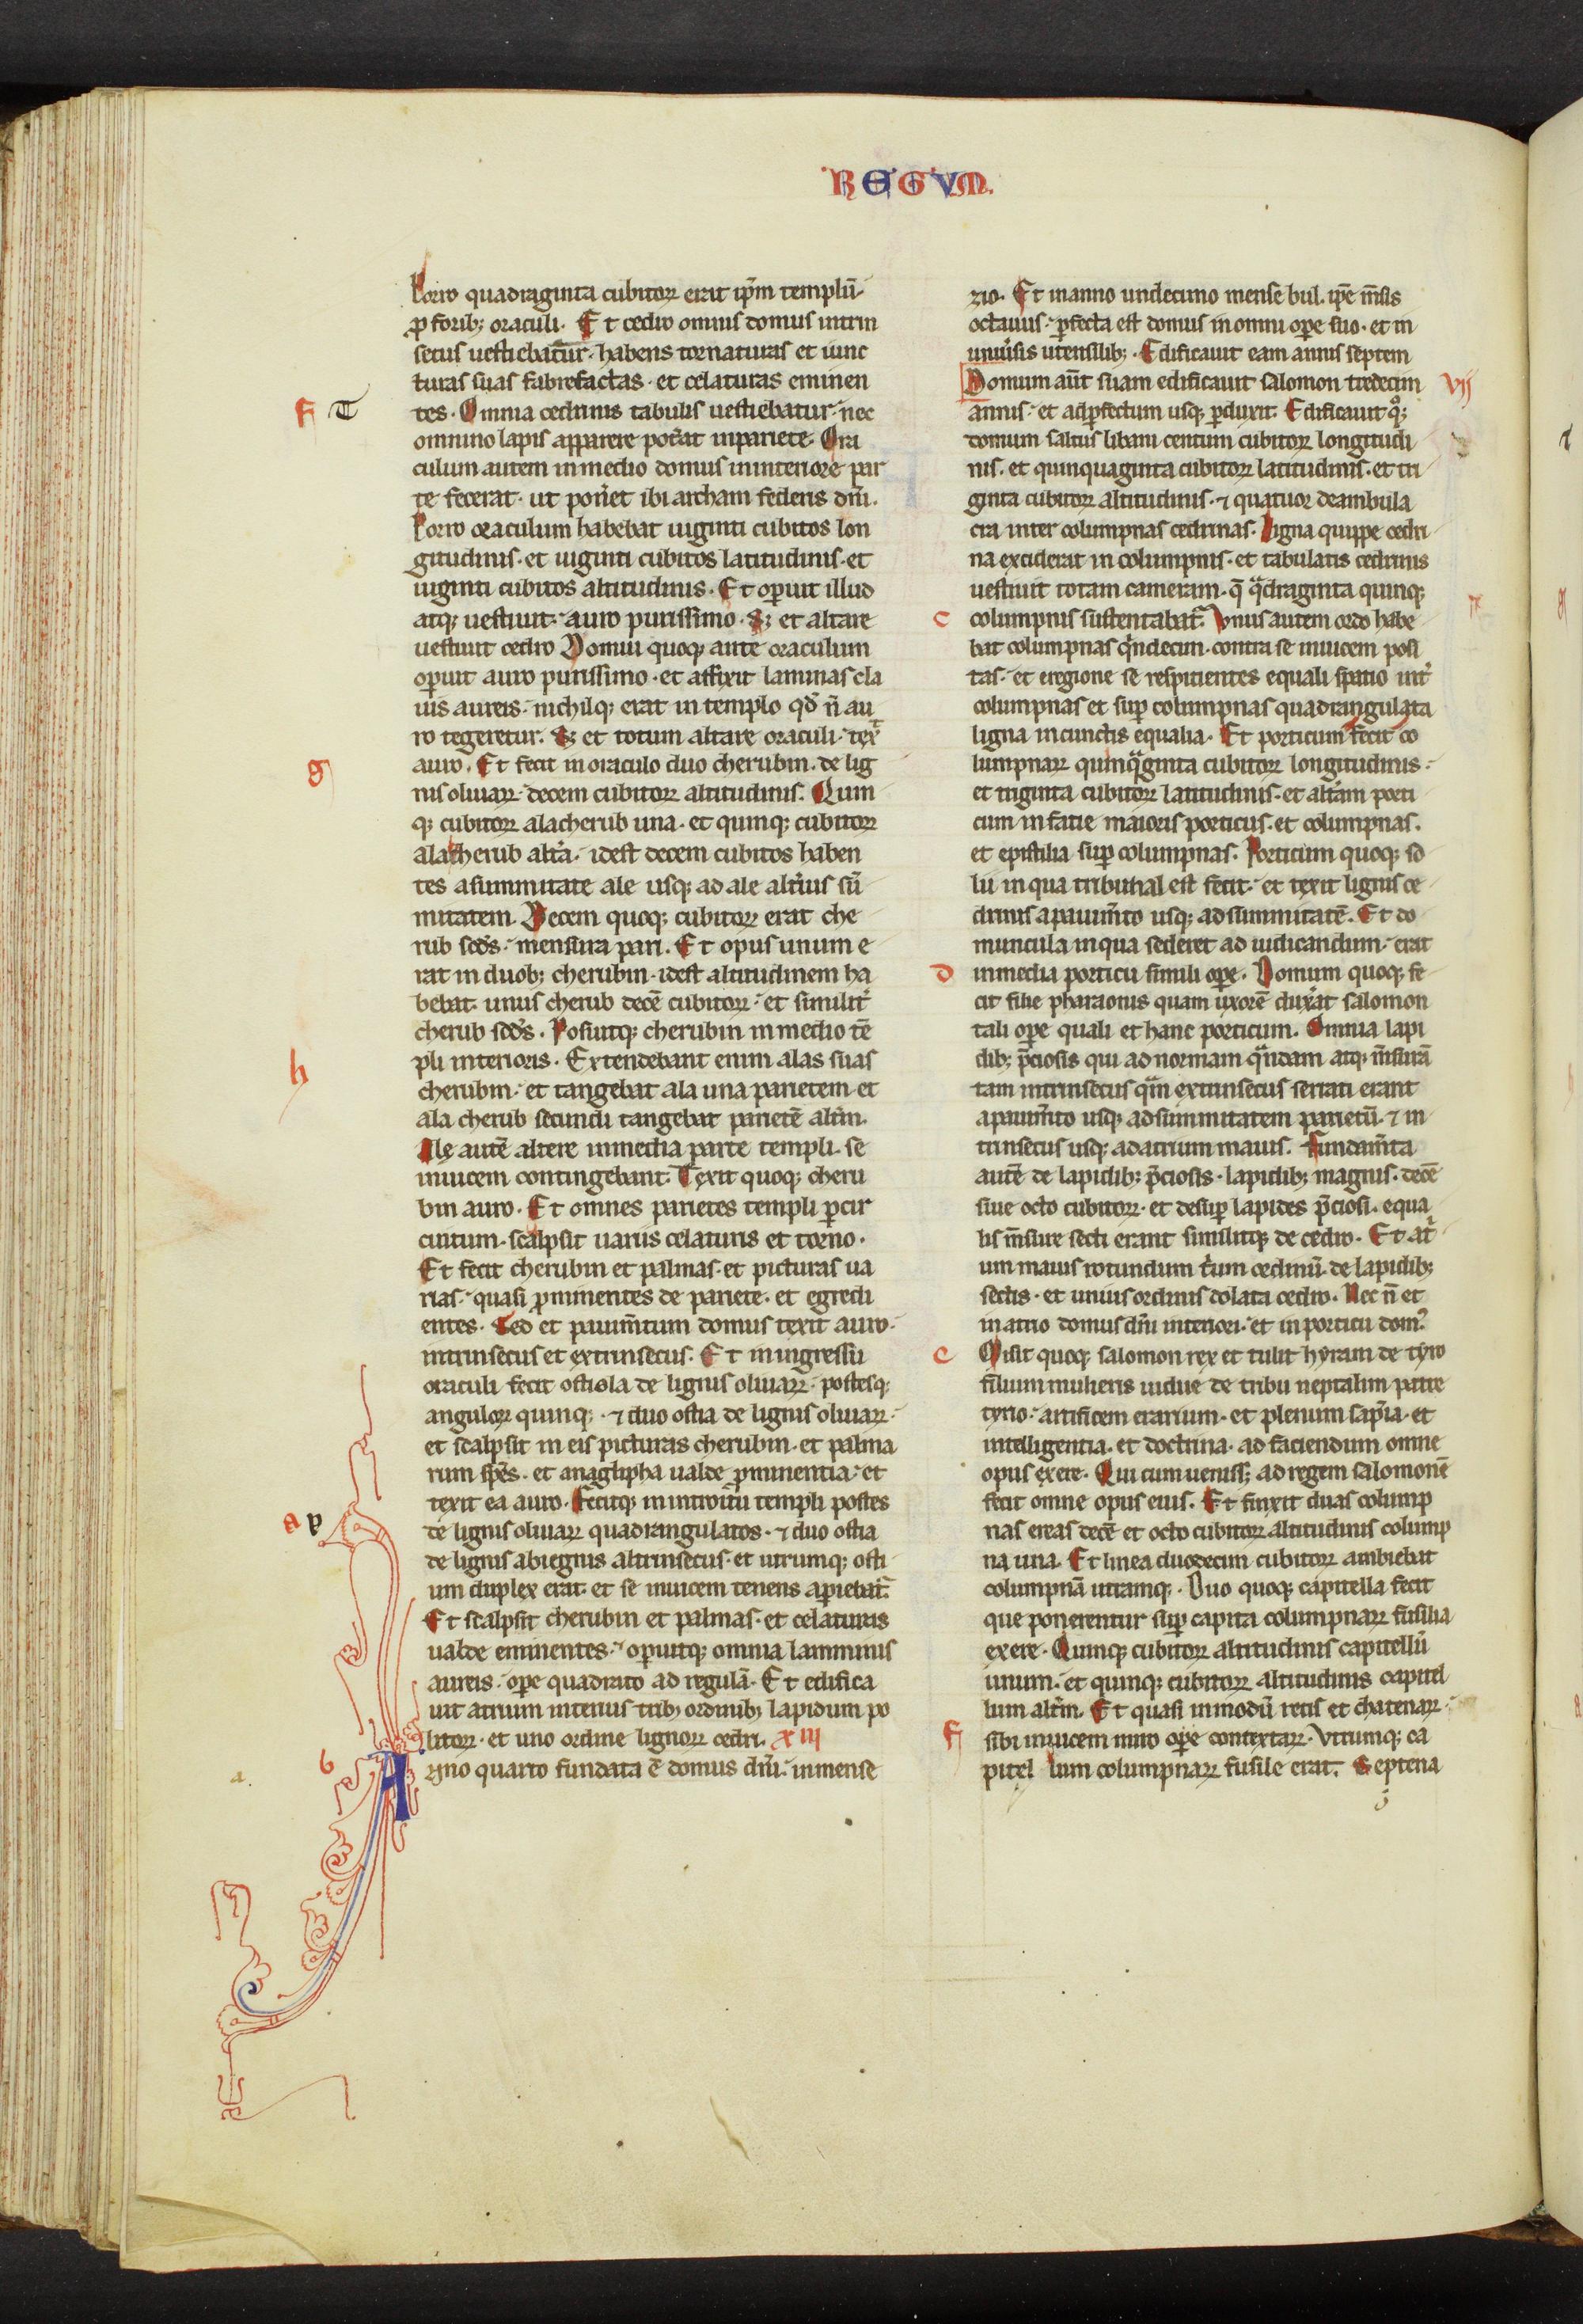 REGVM.
Porro quadraginta cubitoꝝ erat ip̄m templū·
ꝓ forib; oraculi· Et cedro omnis domus intrin
secus uestiebatur· habens tornaturas et iunc
turas suas fabrefactas· et celaturas eminen
f T
tes· Omnia cedrinis tabulis uestiebatur· nec
omnino lapis apparere pot̄at inpariete· Ora
culum autem in medio domus in interiore par
te fecerat· ut pon̄et ibi archam federis dn̄i.
Porro oraculum habebat uiginti cubitos lon
gitudinis· et uiginti cubitos latitudinis· et
uiginti cubitos altitudinis· Et oꝑuit illud
atq; uestiuit· auro purissimo· S; et altare
uestiuit cedro Domum quoq; ante oraculum
oꝑuit auro purissimo· et affixit laminas cla
uis aureis· nichilq; erat in templo qd̄ n̄ au
ro tegeretur. S; et totum altare oraculi· tex̄
g
auro· Et fecit in oraculo duo cherubin· de lig
nis oliuaꝝ· decem cubitoꝝ altitudinis. Quin
q; cubitoꝝ ala cherub una· et quinq; cubitoꝝ
ala cherub alt̄a· idest decem cubitos haben
tes asummitate ale usq; ad ale alt̄ius sū
mitatem. Decem quoq; cubitoꝝ erat che
rub scd̄s· mensura pari. Et opus unum e
rat in duob; cherubin· idest altitudinem ha
bebat unus cherub decē cubitoꝝ· et similit̄
cherub scd̄s. Posuitq; cherubin in medio tē
h
pli interioris. Extendebant enim alas suas
cherubin· et tangebat ala una parietem· et
ala cherub secundi tangebat parietē alt̄m.
Ale autē altere inmedia parte templi· se
inuicem contingebant. Texit quoq; cheru
bin auro· Et omnes parietes templi ꝑ cir
cuitum· scalpsit uariis celaturis et torno·
Et fecit cherubin et palmas· et picturas ua
rias· quasi ꝓminentes de pariete· et egredi
entes. Sed et pauim̄tum domus texit auro·
intrinsecus et extrinsecus. Et in ingressu
oraculi fecit ostiola de lignis oliuaꝝ· postesq;
anguloꝝ quinq;· ⁊ duo ostia de lignis oliuaꝝ·
et scalpsit in eis picturas cherubin· et palma
rum sp̄es· et anaglipha ualde ꝓminentia· et
texit ea auro· Fecitq; in introitu templi postes
a P
de lignis oliuaꝝ quadrangulatos· ⁊ duo ostia
de lignis abiegnis altrinsecus· et utrumq; osti
um duplex erat· et se inuicem tenens aꝑiebat̄
Et scalpsit cherubin et palmas· et celaturas
ualde eminentes· oꝑuitq; omnia lamminis
aureis· oꝑe quadrato ad regulā· Et edifica
uit atrium interius trib; ordinib; lapidum po
litoꝝ· et uno ordine lignoꝝ cedri. XIII
b
Anno quarto fundata ē domus dn̄i· inmense
zio· Et inanno undecimo mense bul· ip̄e m̄sis
octauus· ꝑfecta est domus in omni oꝑe suo· et in
uniu̓sis utensilib;· Edificauit eam annis septem
Domum aūt suam edificauit salomon tredecim
VII
annis· et adꝑfectum usq; ꝑduxit. Edificauit q̊q;
domum saltus libani centum cubitoꝝ longitudi
nis· et quinquaginta cubitoꝝ latitudinis· et tri
ginta cubitoꝝ altitudinis· ⁊ quatuor deambula
cra inter columpnas cedrinas. Ligna quippe cedri
na exciderat in columpnis· et tabulatis cedrinis
uestiuit totam cameram· q̄ qͣdraginta quinq;
c
columpnis sustentabat̄. Vnus autem ordo habe
bat columpnas qͥndecim· contra se inuicem posi
tas· et eregione se respicientes equali spatio int̄
columpnas et suꝑ columpnas quadrangulata
ligna in cunctis equalia· Et porticum fecit co
lumpnaꝝ quinqͣginta cubitoꝝ longitudinis·
et triginta cubitoꝝ latitudinis· et alt̄am porti
cum in facie maioris porticus· et columpnas·
et epistilia suꝑ columpnas. Porticum quoq; so
lii in qua tribunal est fecit· et texit lignis ce
drinis apauim̄to usq; ad summitatē. Et do
muncula in qua sederet ad iudicandum· erat
d
inmedia porticu simili oꝑe· Domum quoq; fe
cit filie pharaonis quam uxorē dux̄at salomon
tali oꝑe quali et hanc porticum. Omnia lapi
dib; p̄ciosis qui ad normam qͣndam atq; m̄surā
tam intrinsecus qͣm extrinsecus serrati erant
apauim̄to usq; ad summitatem parietū· ⁊ in
trinsecus usq; ad atrium maius. Fundam̄ta
autē de lapidib; p̄ciosis· lapidib; magnis· decē
siue octo cubitoꝝ· et desuꝑ lapides p̄ciosi· equa
lis m̄sure secti erant similitq; de cedro· Et at̄
um maius rotundum t̄um ordinū de lapidib;
sectis· et unius ordinis dolata cedro· Nec n̄ et
in atrio domus dn̄i interiori· et in porticu dom̓
e
Misit quoq; salomon rex et tulit hyram de tyro
filium mulieris uidue de tribu neptalim patre
tyrio· artificem erarium· et plenum sap̄ia· et
intelligentia· et doctrina· ad faciendum omne
opus exere· Qui cum ueniss; ad regem salomonē
fecit omne opus eius. Et finxit duas colump
nas ereas decē et octo cubitoꝝ altitudinis colump
na una. Et linea duodecim cubitoꝝ ambiebat
columpnā utramq;· Duo quoq; capitella fecit
que ponerentur suꝑ capita columpnaꝝ fusilia
exere· Quinq; cubitoꝝ altitudinis capitellū
unum· et quinq; cubitoꝝ altitudinis capitel
lum alt̄m. Et quasi inmodū retis et chatenaꝝ·
f
sibi inuicem miro oꝑe contextaꝝ. Vtrumq; ca
pitel lum columpnaꝝ fusile erat. Septena